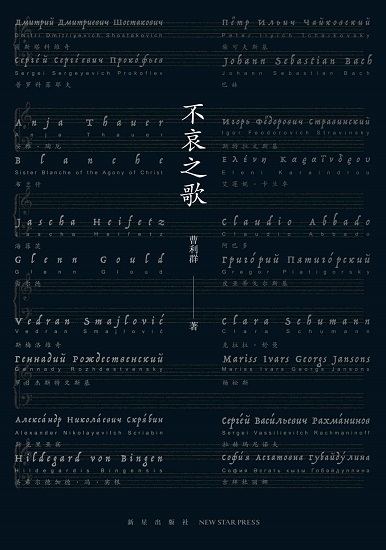 Дмитрий Дмитриевич Шостакович
Dmitri Dmitriyevich Shostakovich
肖斯塔科维奇
Сергей Сергеевич Прокофьев
Sergei Sergeyevich Prokofiev
普罗科菲耶夫
Anja Thauer
Anja Thauer
Blanche
Sister Blanche of the Agony of Christ
Jascha Heifetz
Jascha Heifetz
海菲茨
Glenn Gould
Glenn Gloud
古尔德
Vedran Smajlović
Vedran Smajlović
斯梅洛维奇
Геннадий Рождественский
Gennady Rozhdestvensky
Алекса́ндр Никола́евич Скря́бин
Alexander Nikolayevitch Scriabin
Hildegard von Bingen
Hildegardis Bingensis
不哀之歌
曹利群
著
Пётр Ильич Чайковский
Peter Ilyich Tchaikovsky
柴可夫斯基
Johann Sebastian Bach
Johann Sebastian Bach
巴赫
Игорь Фёдорович Стравинский
Igor Feodorovich Stravinsky
斯特拉文斯基
Ελένη Καραΐνδρου
Eleni Karaindrou
Claudio Abbado
Claudio Abbado
阿巴多
Григо́рий Пятиго́рский
Gregor Piatigorsky
皮亚蒂戈尔斯基
Clara Schumann
Clara Schumann
克拉拉·舒曼
Mariss Ivars Georgs Jansons
Mariss Ivars Georgs Jansons
杨松斯
Серге́й Васи́льевич Рахма́нинов
Sergei Vassilievitch Rachmaninoff
拉赫玛尼诺夫
Софи́я Асгатовна Губайду́лина
新星出版社 NEW STAR PRESS